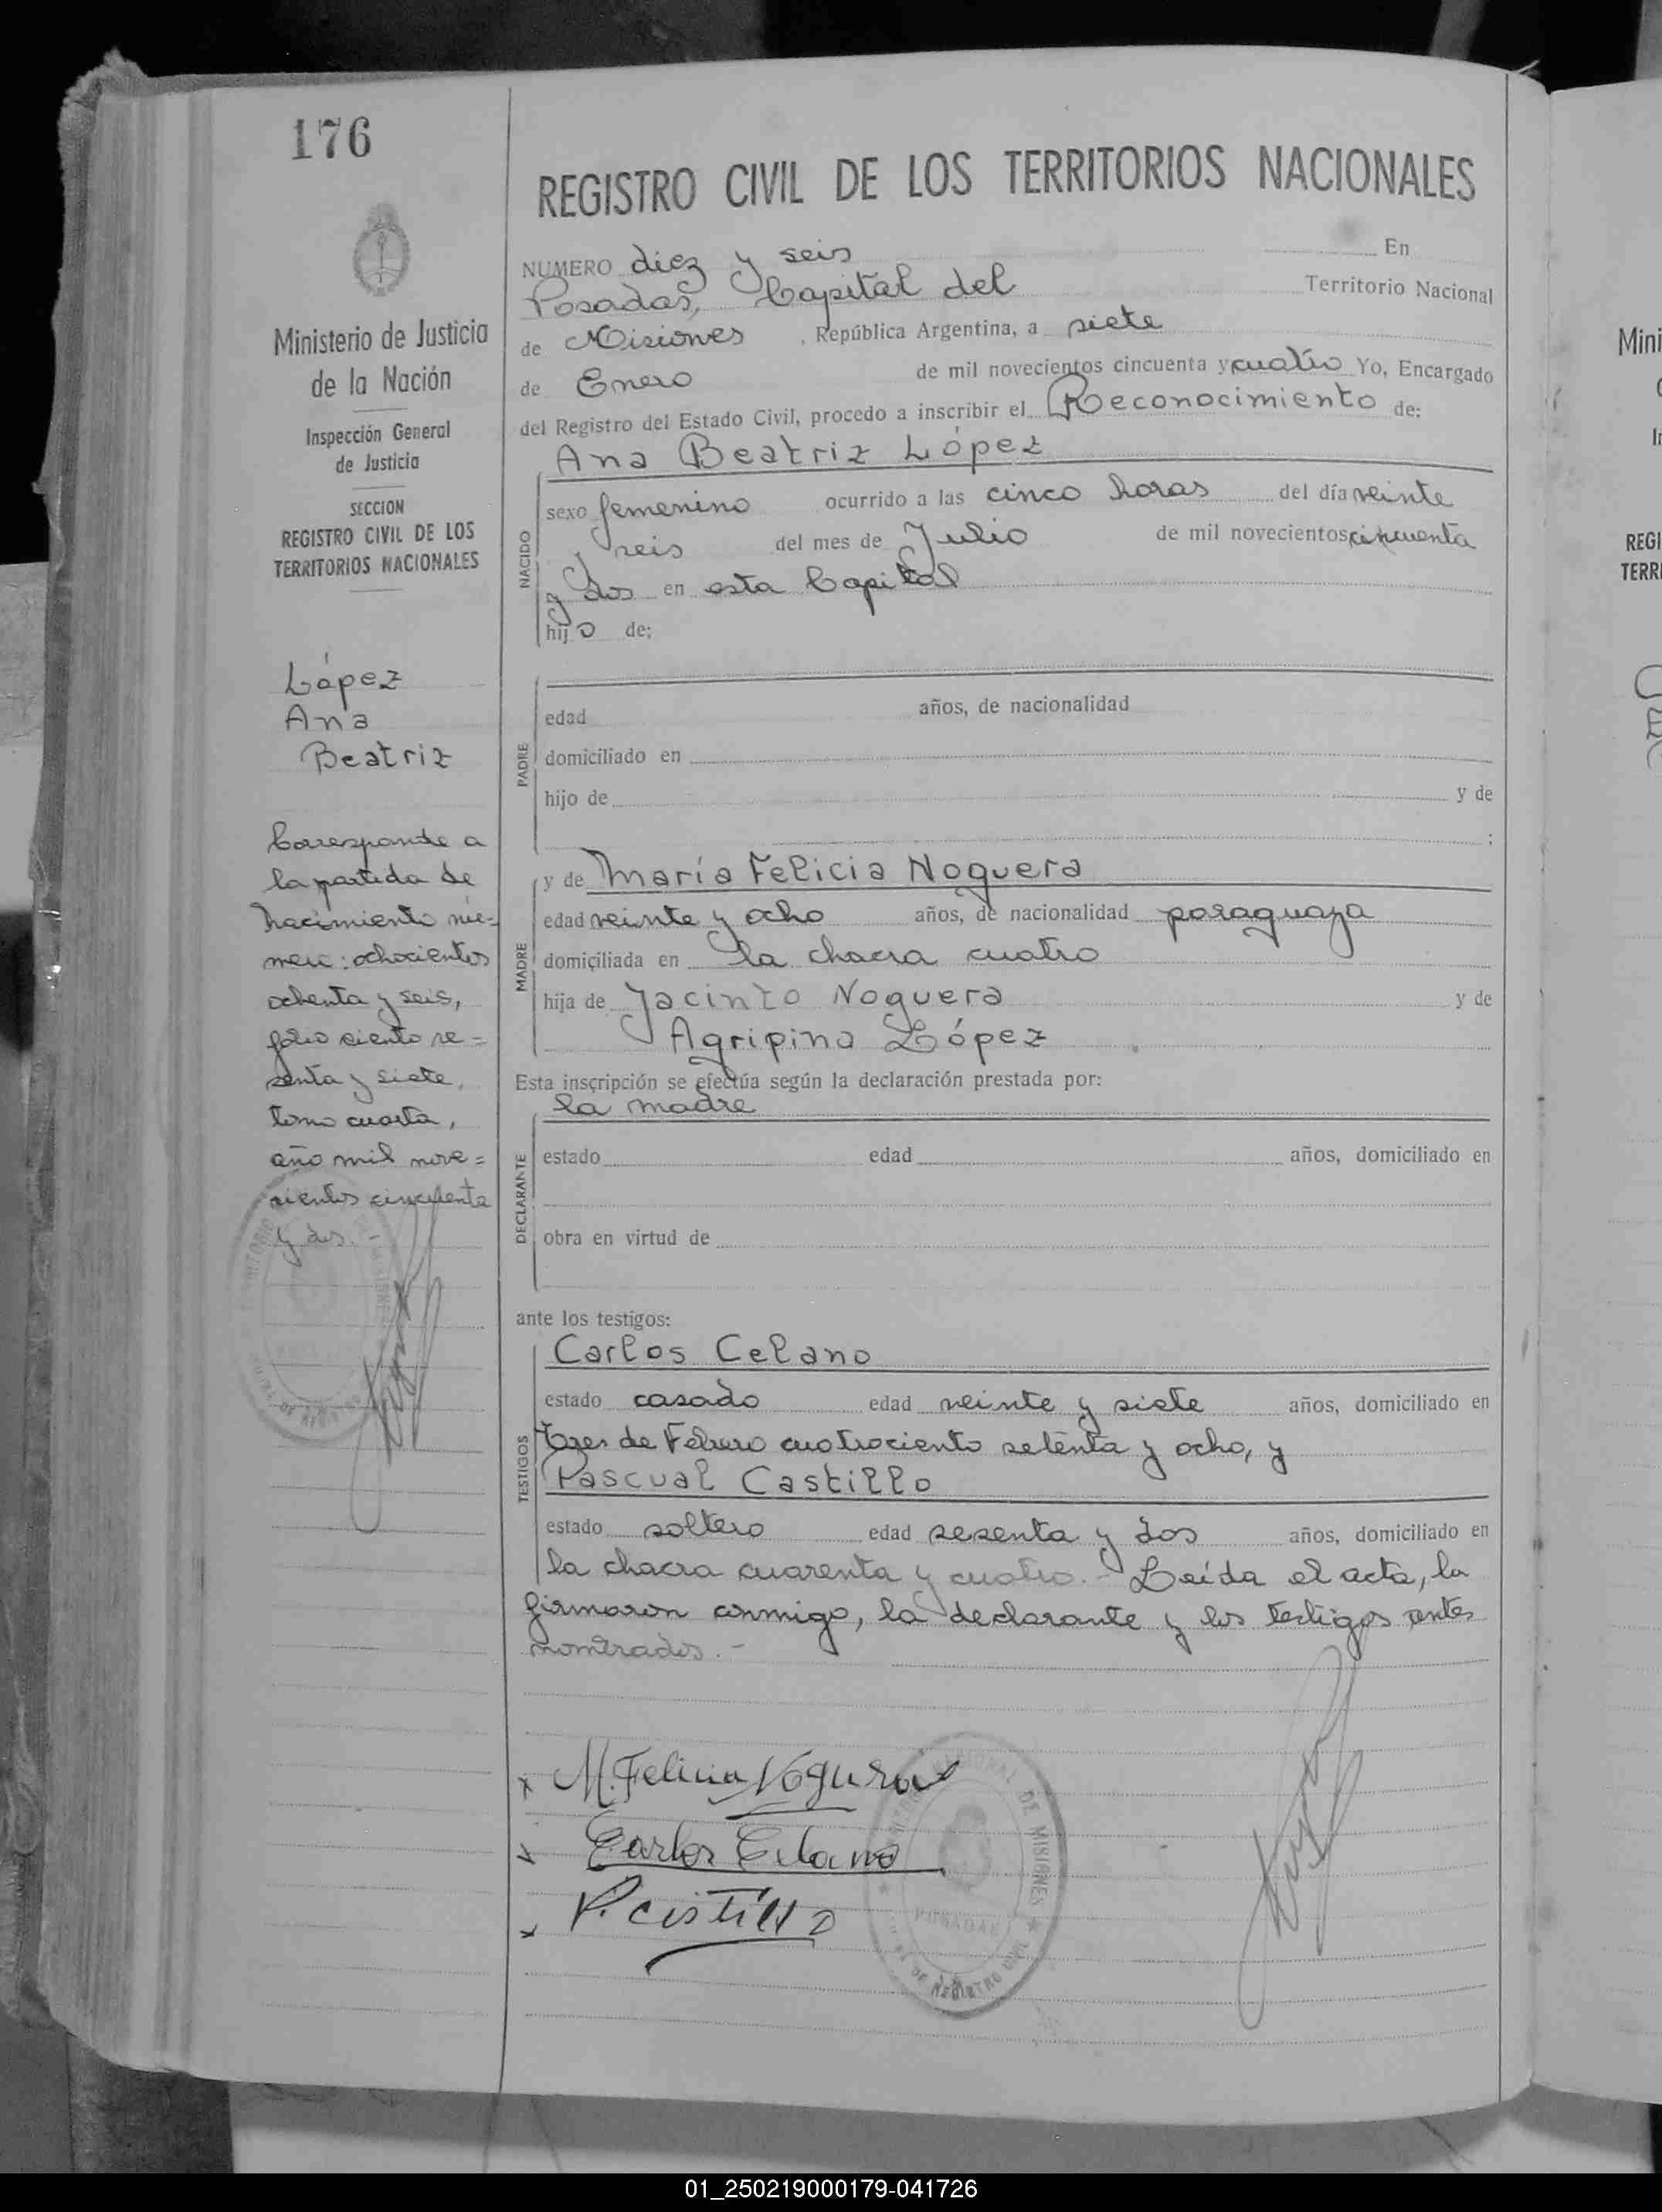 176
REGISTRO CIVIL DE LOS TERRITORIOS NACIONALES
NUMERO diez y seis En
Posadas, Capital del Territorio Nacional
de Misiones, República Argentina, a siete
de Enero de mil novecientos cincuenta y cuatro Yo, Encargado
del Registro del Estado Civil, procedo a inscribir el Reconocimiento de:
Ana Beatriz López
NACIDO
sexo femenino ocurrido a las cinco horas del día veinte
y seis del mes de Julio de mil novecientos cincuenta
y dos en esta Capital
hijo de:
PADRE
edad años, de nacionalidad
domiciliado en
hijo de y de
;
MADRE
y de María Felicia Noguera
edad veinte y ocho años, de nacionalidad paraguaya
domiciliada en la chacra cuatro
hija de Jacinto Noguera y de
Agripina López
Esta inscripción se efectúa según la declaración prestada por:
la madre
DECLARANTE
estado edad años, domiciliado en
obra en virtud de
ante los testigos:
TESTIGOS
Carlos Celano
estado casado edad veinte y siete años, domiciliado en
Tres de Febrero cuatrociento setenta y ocho, y
Pascual Castillo
estado soltero edad sesenta y dos años, domiciliado en
la chacra cuarenta y cuatro.- Leída el acta, la
firmaron conmigo, la declarante y los testigos antes
nombrados.-
x M. Felicia Noguera
x Carlos Celano
x P. Castillo
NACIONAL DE MISIONES
POSADAS
DE REGISTRO CIVIL
Ministerio de Justicia
de la Nación
Inspección General
de Justicia
SECCION
REGISTRO CIVIL DE LOS
TERRITORIOS NACIONALES
López
Ana
Beatriz
Corresponde a
la partida de
nacimiento nú=
mero: ochocientos
ochenta y seis,
folio ciento se=
senta y siete,
tomo cuarto,
año mil nove=
cientos cincuenta
y dos.-
Mini
REGI
TERRI
01_250219000179-041726